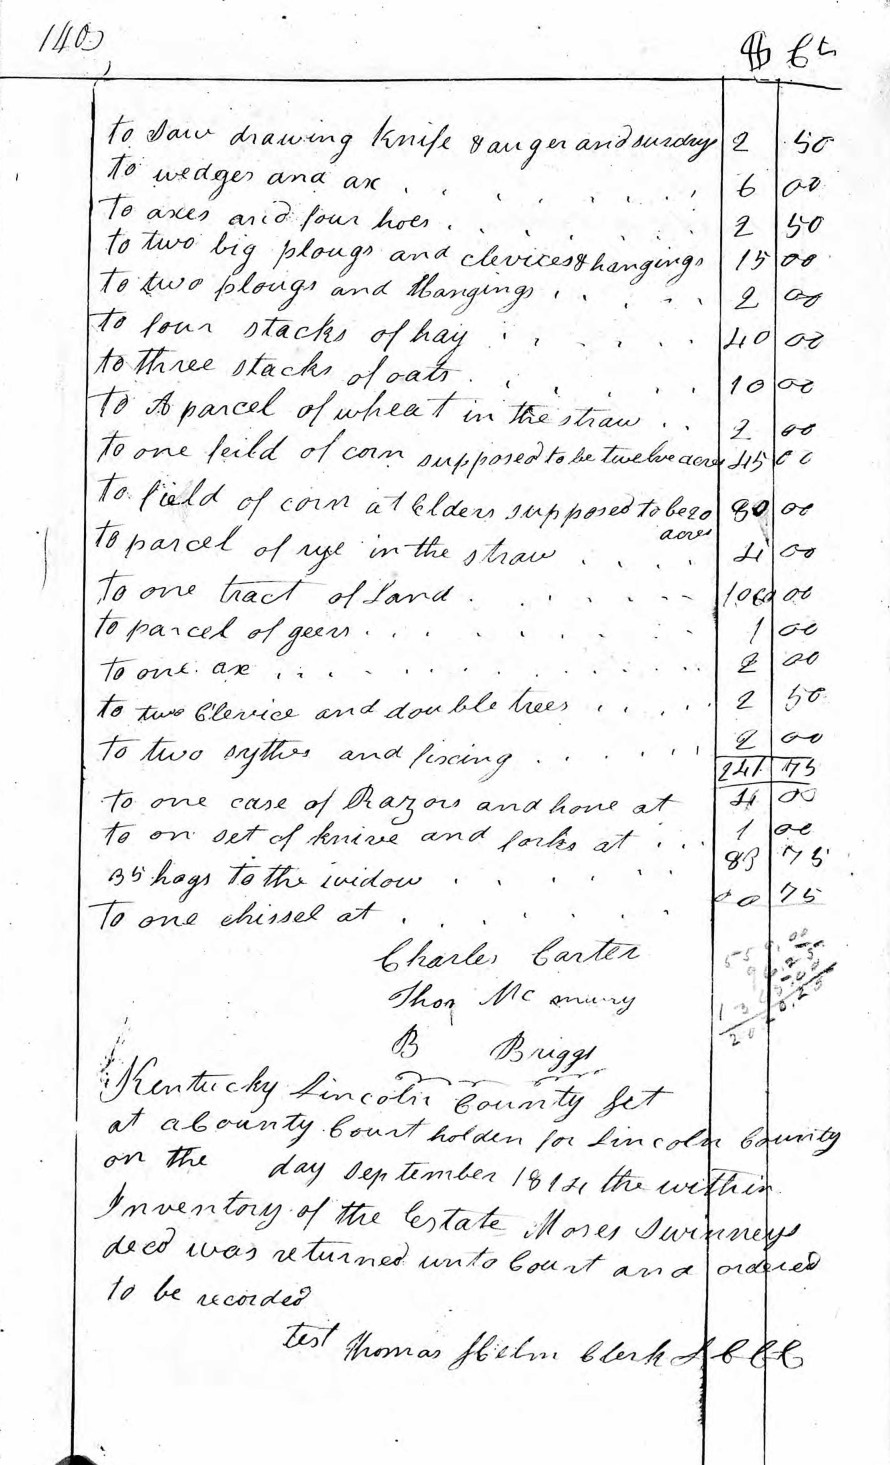 140)
$ Cts
to Saw drawing Knife & auger and sundrys 2 50
to wedges and ax 6 00
To axes and four hoes 2 50
to two big plougs and clevices & hangings 15 00
to two plougs and Hangings 2 00
to four stacks of hay 40 00
to three stacks of oats 10 00
to A parcel of wheat in the straw 2 00
to one feild of corn supposed to be twelve acres 45 00
to field of corn at Elders supposed to be 20 80 00
acres
to parcel of rye in the straw 4 00
to one tract of Land 00
to parcel of geers 1 00
to one ax 2 00
to two Clevice and double trees 2 50
to two sythes and fixing 2 00
241 75
to one case of Razors and hone at 4 00
to on set of knive and forks at 1 00
35 hogs to the widow 83 75
To one chissel at 00 75
Charles Carter
Thos Mc murry
B Briggs
559.00
Kentucky Lincoln County Set
at a County Court holden for Lincoln County
on the day September 1814 the within
Inventory of the Estate Moses Swinneys
decd was returned unto Court and ordered
to be recorded
test Thomas Helm Clerk L C C C